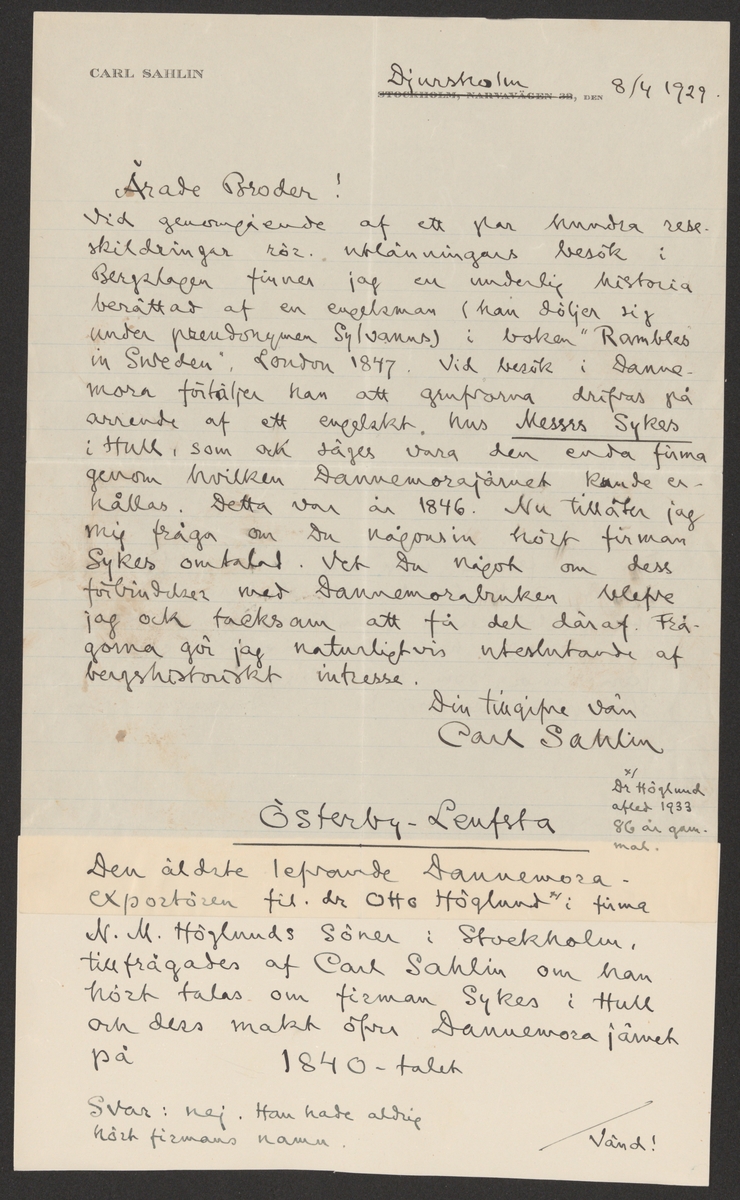 CARL SAHLIN
Djursholm
STOCKHOLM, NARVAVÄGEN 32, DEN 8/4 1929.
Ärade Broder!
Vid genomgående af ett par hundra rese-
skildringar rör. utlänningars besök i
Bergslagen finner jag en underlig historia
berättad af en engelsman (han döljer sig
under pseudonymen Sylvanus) i boken "Rambles
in Sweden", London 1847. Vid besök i Danne-
mora förtäljer han att grufvorna drifvas på
arrende af ett engelskt hus Messrs Sykes
i Hull, som ock säges vara den enda firma
genom hvilken Dannemorajärnet kunde er-
hållas. Detta var år 1846. Nu tillåter jag
mig fråga om Du någonsin hört firman
Sykes omtalad. Vet Du något om dess
förbindelser med Dannemorabruken blefve
jag ock tacksam att få del däraf. Frå-
gorna gör jag naturligtvis uteslutande af
bergshistoriskt intresse.
Din tillgifne vän
Carl Sahlin
x/
Dr Höglund
afled 1933
86 år gam-
mal.
Österby-Leufsta
Den äldste lefvande Dannemora-
exportören fil. dr Otto Höglund x/ i firma
N. M. Höglunds Söner i Stockholm,
tillfrågades af Carl Sahlin om han
hört talas om firman Sykes i Hull
och dess makt öfver Dannemorajärnet
på 1840-talet
Svar: nej. Han hade aldrig
hört firmans namn.
Vänd!